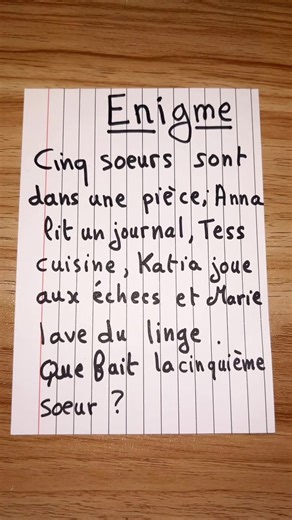 Enigme
Cinq soeurs sont
dans une pièce, Anna
lit un journal, Tess
cuisine, Katia joue
aux échecs et Marie
lave du linge.
Que fait la cinquième
soeur ?